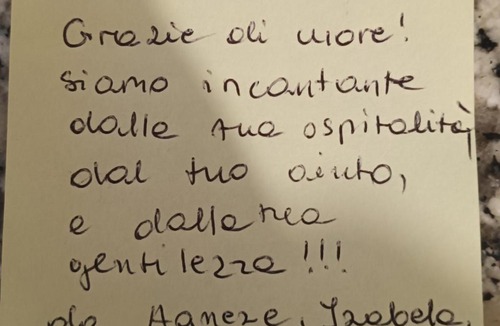 Grazie di uore!
siamo incantante
dalla tua ospitalità,
dal tuo aiuto,
e dalla tua
gentilezza!!!
da Agnese, Izabela,